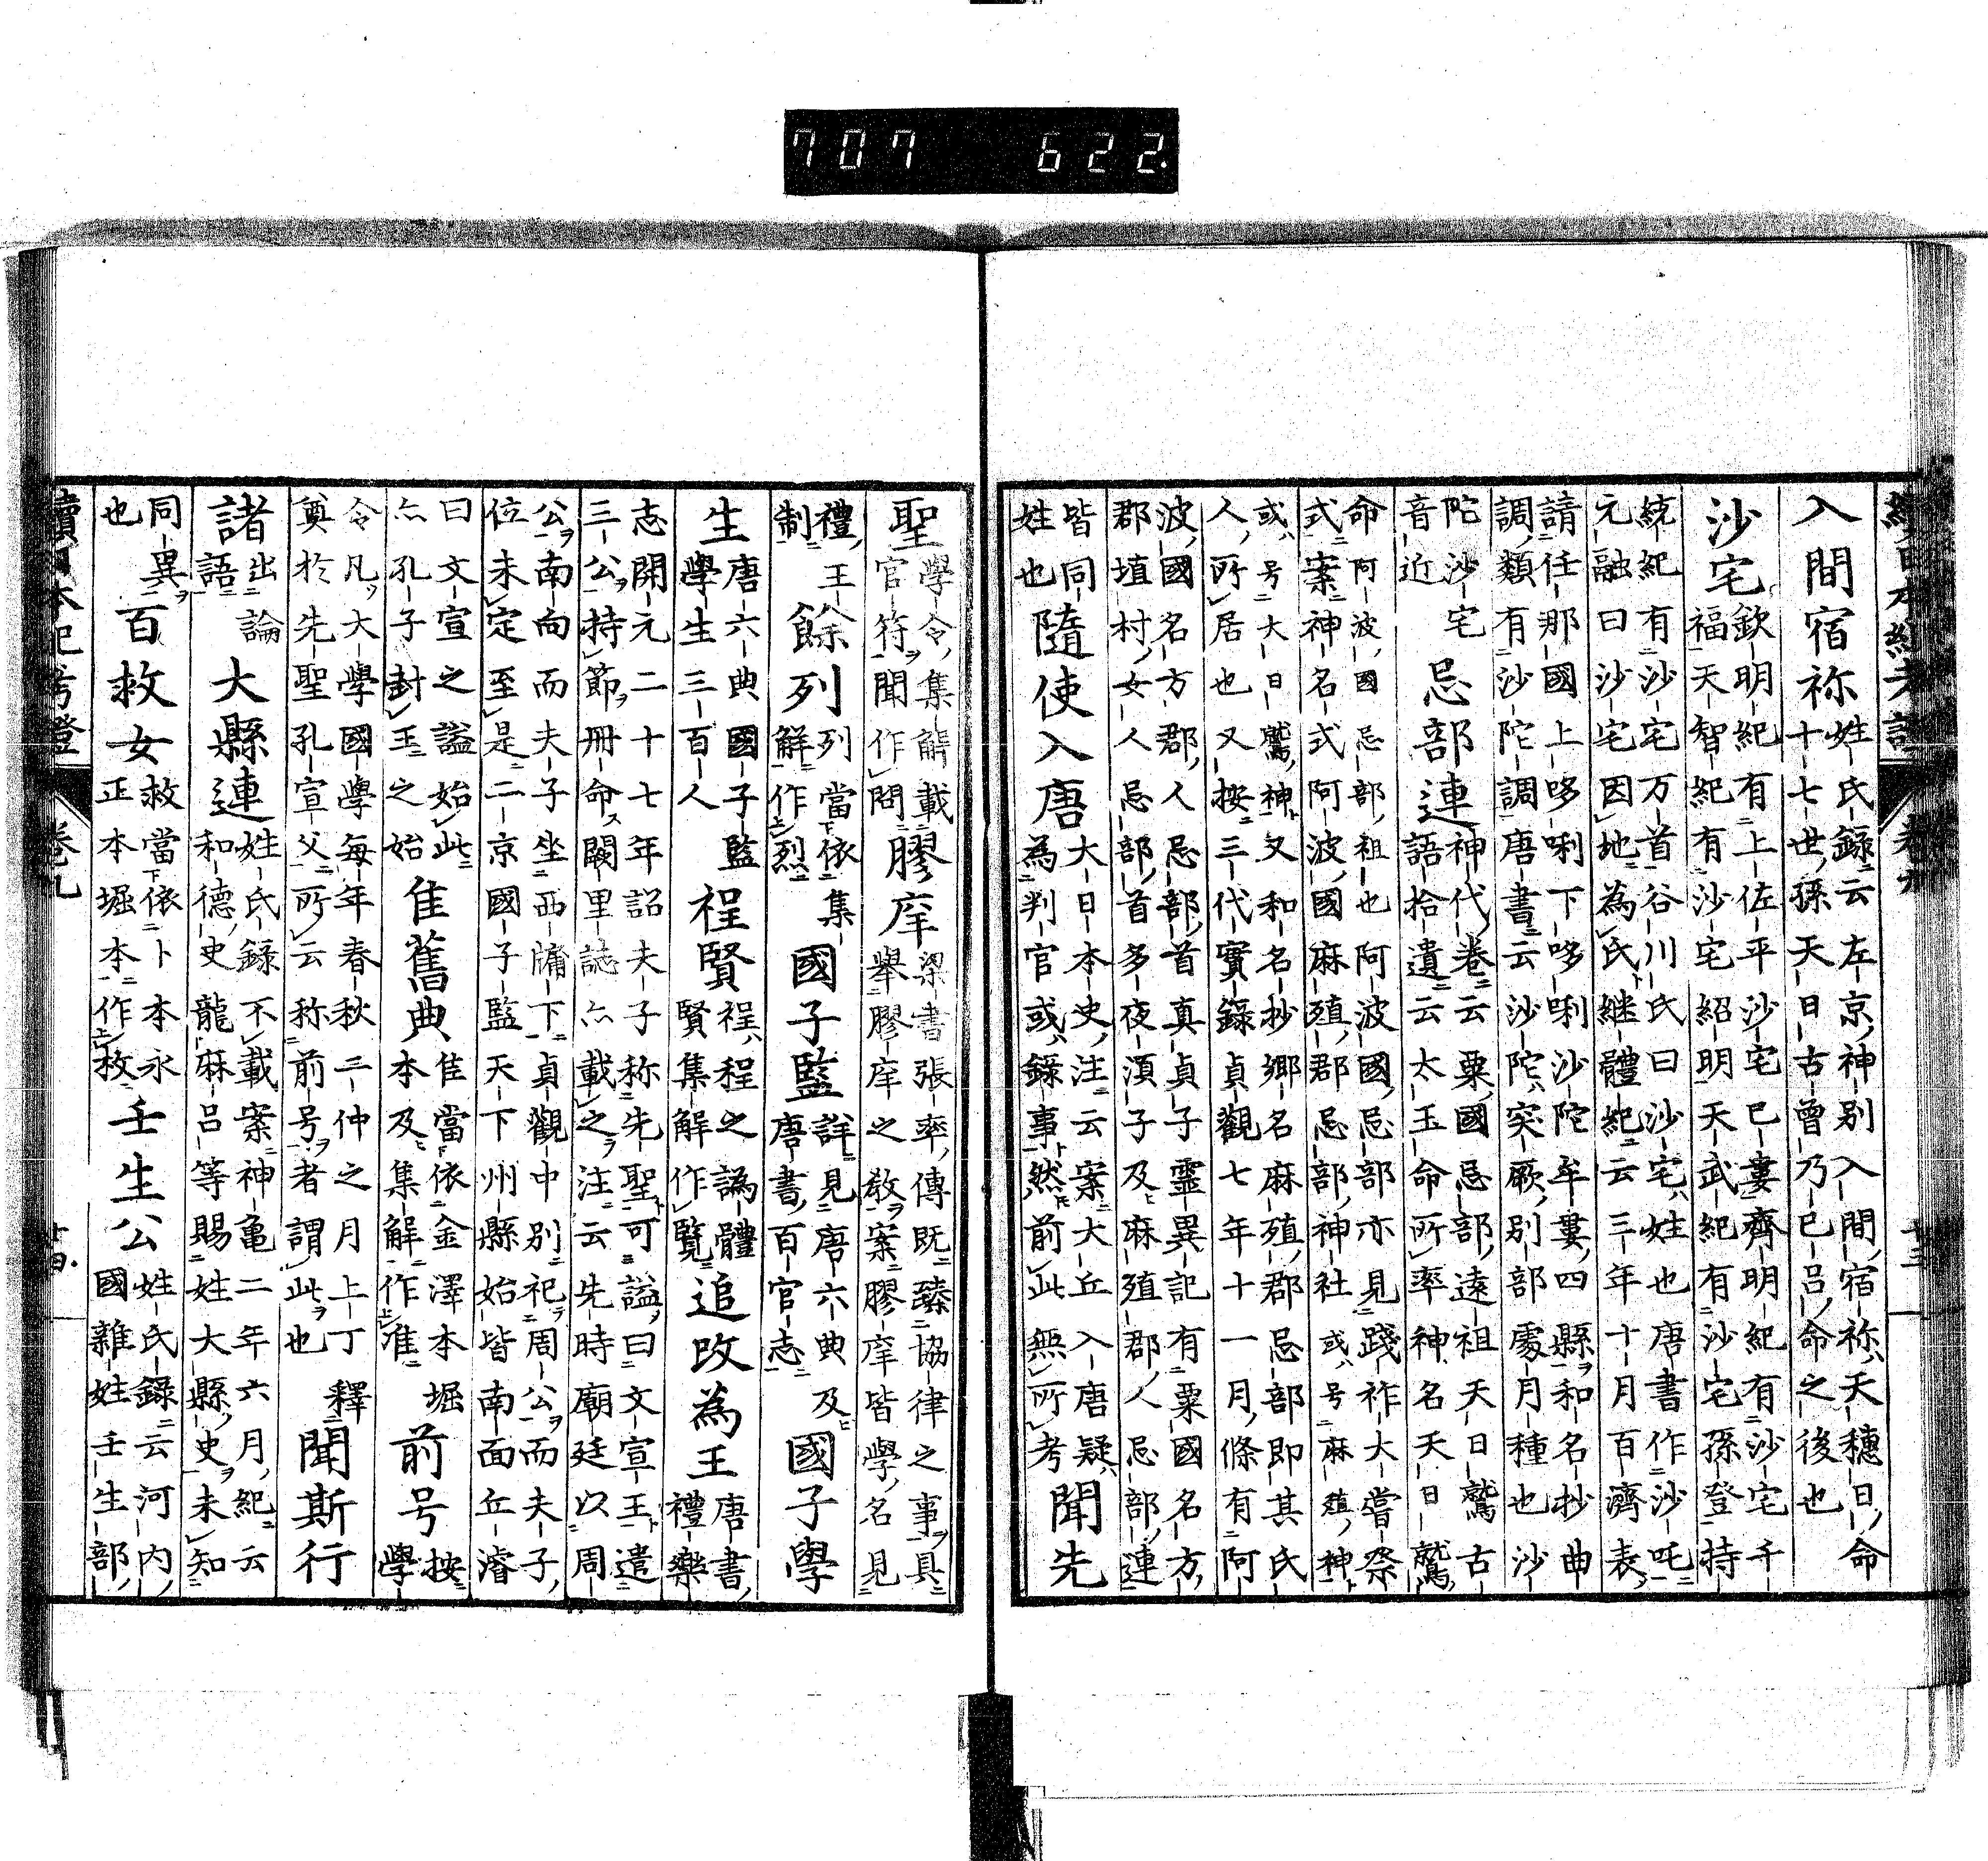 707 622.
續日本紀考證 卷九 十三
入間宿祢 姓氏錄云左京神别入間宿祢天穗日命
十七世孫天日古曾乃已呂命之後也
沙宅 欽明紀有上佐平沙宅已婁齊明紀有沙宅千
福天智紀有沙宅紹明天武紀有沙宅孫登持
統紀有沙宅万首谷川氏曰沙宅姓也唐書作沙吒
元融曰沙宅因地為氏継體紀云三年十月百濟表
請任那國上哆唎下哆唎沙陀牟婁四縣和名抄曲
調類有沙陀調唐書云沙陀突厥别部處月種也沙
陀沙宅
音近
忌部連 神代卷云粟國忌部遠祖天日鷲古
語拾遺云太玉命所率神名天日鷲
命阿波國忌部祖也阿波國忌部亦見踐祚大嘗祭
式案神名式阿波國麻殖郡忌部神社或号麻殖神
或号大日鷲神又和名抄郷名麻殖郡忌部即其氏
人所居也又按三代實錄貞觀七年十一月條有阿
波國名方郡人忌部首真貞子靈異記有粟國名方
郡埴村女人忌部首多夜湏子及麻殖郡人忌部連
皆同
姓也
隨使入唐 大日本史注云案大丘入唐疑
為判官或錄事然前此無所考
聞先
聖 學令集解載
官符聞作問
膠庠 梁書張率傳既臻協律之事具
舉膠庠之教案膠庠皆學名見
禮王
制
餘列 列當依集
解作烈
國子監 詳見唐六典及
唐書百官志
國子學
生 唐六典國子監
學生三百人
程賢 程程之譌體
賢集解作覧
追改為王 唐書
禮樂
志開元二十七年詔夫子称先聖可謚曰文宣王遣
三公持節冊命闕里誌亦載之注云先時廟廷以周
公南向而夫子坐西牖下貞觀中别祀周公而夫子
位未定至是二京國子監天下州縣始皆南面丘濬
曰文宣之謚始此
亦孔子封王之始
隹舊典 隹當依金澤本堀
本及集解作准
前号 按
學
令凡大學國學每年春秋二仲之月上丁釋
奠於先聖孔宣父所云称前号者謂此也
聞斯行
諸 出論
語
大縣連 姓氏錄不載案神亀二年六月紀云
和德史龍麻呂等賜姓大縣史未知
同異
也
百救女 救當依卜本永
正本堀本作枚
壬生公 姓氏錄云河内
國雜姓壬生部
續日本紀考證 卷九 十四